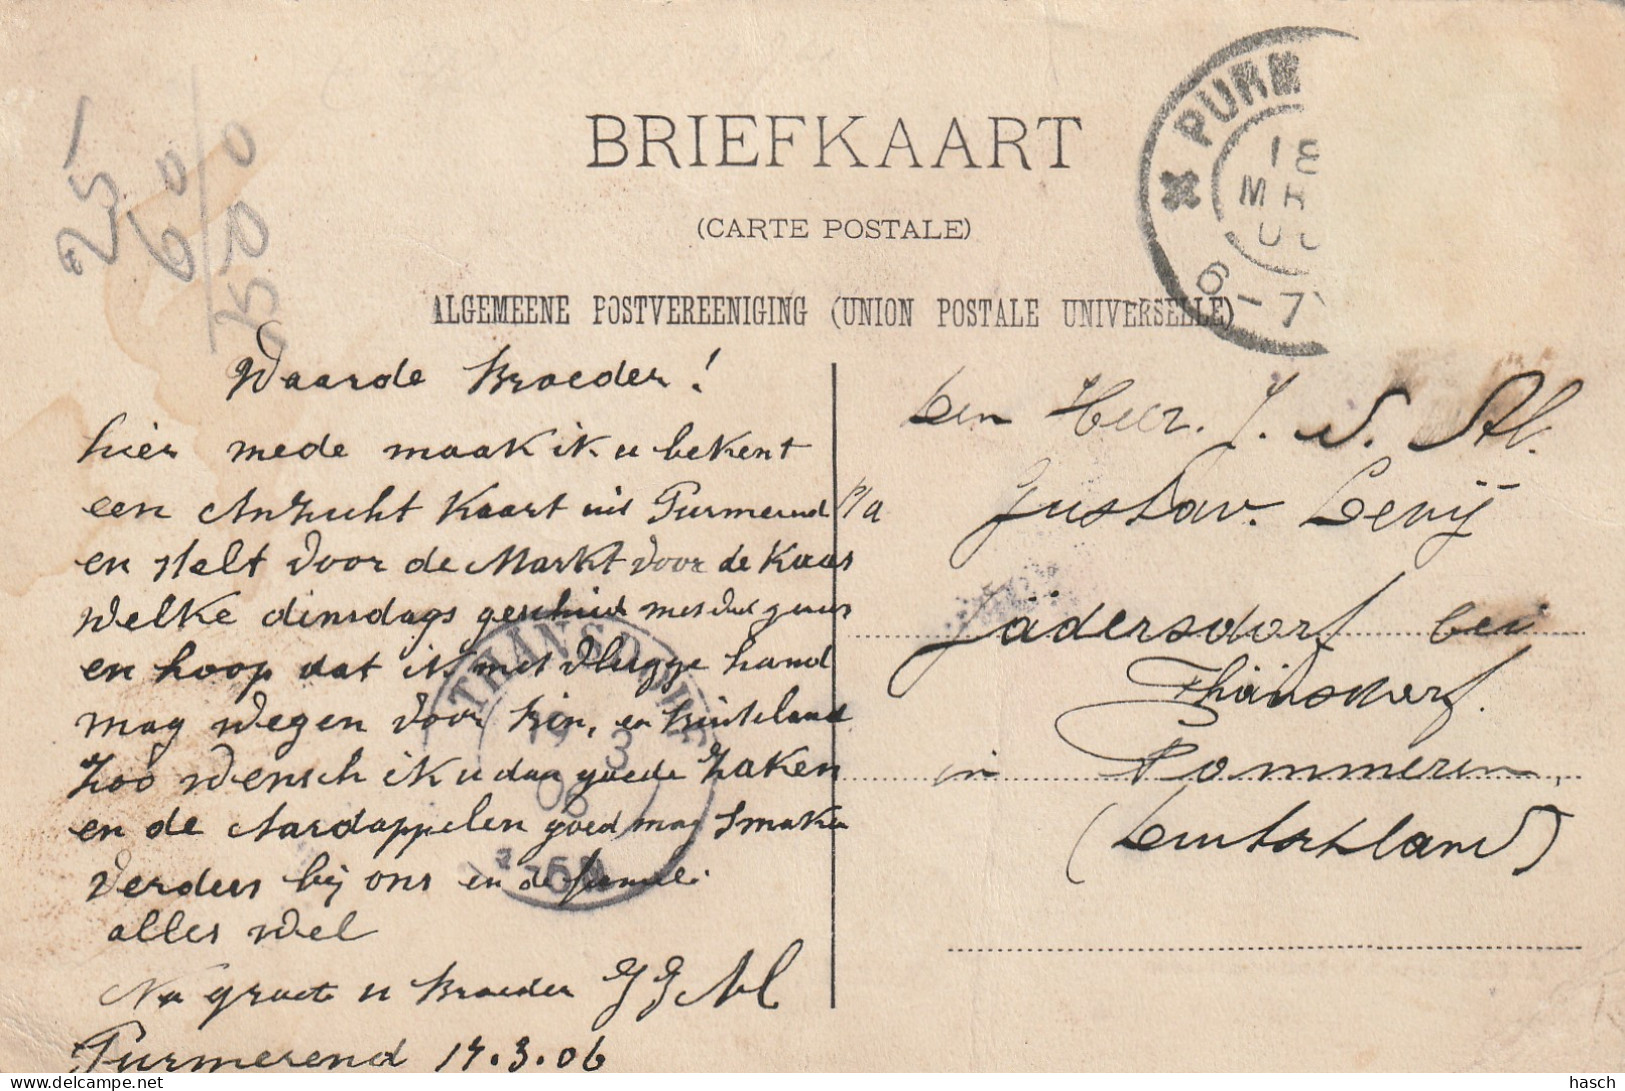 BRIEFKAART
(CARTE POSTALE)
ALGEMEENE POSTVEREENIGING (UNION POSTALE UNIVERSELLE)
PURM
18
MR
6-7
25
600
Waarde Broeder!
hier mede maak ik u bekent
een Anzicht Kaart uit Purmerend
en stelt voor de Markt voor de Kaas
welke dinsdags geschied
en hoop dat ik met vlugge hand
mag wegen voor bin, en buiteland
Zoo wensch ik u dan goede Zaken
en de Aardappelen goed mag smaken
Verders bij ons en de famieli
alles wel
Na groet u Broeder
Purmerend 17.3.06
THANSDORF
19
3
06
Den Heer. J. S. Al.
p/a Gustav. Levij
Jädersdorf bei
Thänsdorf.
in Pommeren,
(Deutschland)
hasch